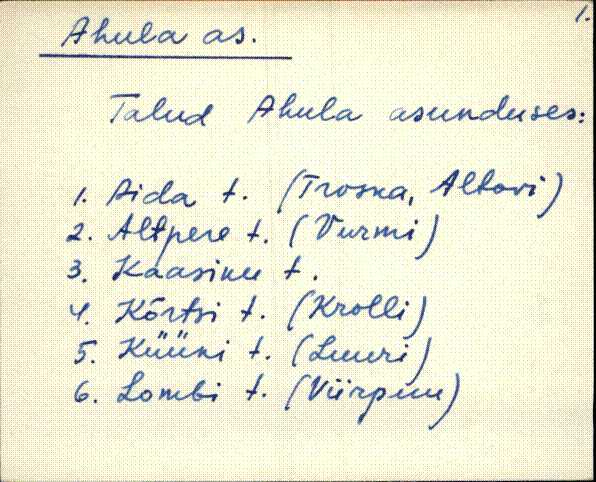 1.
Ahula as.
Talud Ahula asunduses:
1. Aida t. (Troska, Altovi)
2. Altpere t. (Vurmi)
3. Kaasiku t.
4. Kõrtsi t. (Krolli)
5. Küüni t. (Luuri)
6. Lombi t. (Viirpuu)